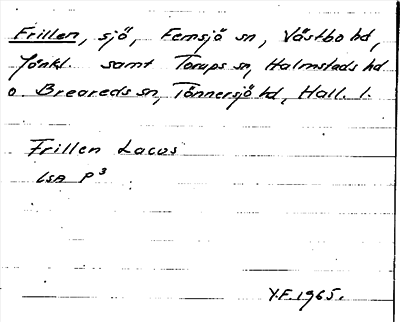 Frillen, sjö, Femsjö sn, Västbo hd,
Jönkl. samt Torups sn, Halmstads hd
o. Breareds sn, Tönnersjö hd, Hall. l.
Frillen Lacus
LSA P³
Y.F. 1965.